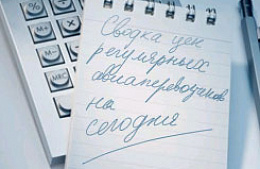 Сводка цен
регулярных
авиаперевозчиков
на
сегодня
%
M÷
M-
MRC
M+